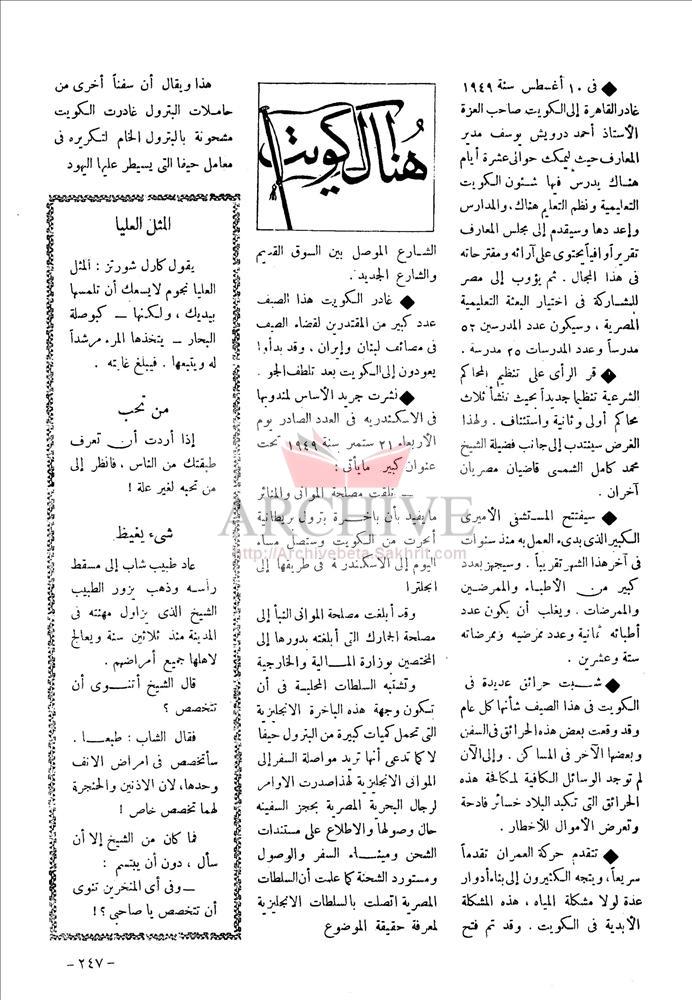 ◆ فى ١٠ أغسطس سنة ١٩٤٩
غادر القاهرة إلى الكويت صاحب العزة
الأستاذ أحمد درويش يوسف مدير
المعارف حيث ليمكث حوالى عشرة أيام
هناك يدرس فيها شئون الكويت
التعليمية ونظم التعليم هناك، والمدارس
وإعدادها وسيقدم إلى مجلس المعارف
تقريراً وافياً يحتوى على آرائه ومقترحاته
فى هذا المجال . ثم يؤوب إلى مصر
للمشاركة فى اختيار البعثة التعليمية
المصرية ، وسيكون عدد المدرسين ٥٢
مدرساً وعدد المدرسات ٣٥ مدرسة .
◆ قر الرأى على تنظيم المحاكم
الشرعية تنظيما جديداً بحيث تنشأ ثلاث
محاكم أولى وثانية واستئناف . ولهذا
الغرض سينتدب إلى جانب فضيلة الشيخ
محمد كامل الشمسى قاضيان مصريان
آخران .
◆ سيفتتح المستشفى الأميرى
الكبير الذى بدىء العمل به منذ سنوات
فى آخر هذا الشهر تقريباً . وسيجهز بعدد
كبير من الأطباء والممرضين
والممرضات . ويغلب أن يكون عدد
أطبائه ثمانية وعدد ممرضيه وممرضاته
ستة وعشرين .
◆ شبت حرائق عديدة فى
الكويت فى هذا الصيف شأنها كل عام
وقد وقعت بعض هذه الحرائق فى السفن
وبعضها الآخر فى المساكن . وإلى الآن
لم توجد الوسائل الكافية لمكافحة هذه
الحرائق التى تكبد البلاد خسائر فادحة
وتعرض الأموال للأخطار .
◆ تتقدم حركة العمران تقدماً
سريعاً ، ويتجه الكثيرون إلى بناء أدوار
عدة لولا مشكلة المياه ، هذه المشكلة
الأبدية فى الكويت . وقد تم فتح
هُنَا الكويت
الشارع الموصل بين السوق القديم
والشارع الجديد .
◆ غادر الكويت هذا الصيف
عدد كبير من المقتدرين لقضاء الصيف
فى مصائف لبنان وإيران ، وقد بدأوا
يعودون إلى الكويت بعد تلطف الجو .
◆ نشرت جريد الأساس لمندوبها
فى الاسكندريه فى العدد الصادر يوم
الأربعاء ٢١ ستمبر سنة ١٩٤٩ تحت
عنوان كبير مايأتى :
— تلقت مصلحة الموانى والمنائر
مايفيد بأن باخرة بترول بريطانية
أبحرت من الكويت وستصل مساء
اليوم إلى الاسكندرية فى طريقها إلى
انجلترا
وقد أبلغت مصلحة الموانى النبأ إلى
مصلحة الجمارك التى أبلغته بدورها إلى
المختصين بوزارة المالية والخارجية
وتشتبه السلطات المحلية فى أن
تكون وجهة هذه الباخرة الانجليزية
التى تحمل كميات كبيرة من البترول حيفا
لا كما تدعى أنها تريد مواصلة السفر إلى
الموانى الانجليزية لهذا صدرت الاوامر
لرجال البحرية المصرية بحجز السفينه
حال وصولها والاطلاع على مستندات
الشحن وميناء السفر والوصول
ومستورد الشحنة كما علمت أن السلطات
المصرية اتصلت بالسلطات الانجليزية
لمعرفة حقيقة الموضوع
هذا ويقال أن سفناً أخرى من
حاملات البترول غادرت الكويت
مشحونة بالبترول الخام لتكريره فى
معامل حيفا التى يسيطر عليها اليهود
المثل العليا
يقول كارل شورتز : المثل
العليا نجوم لايسعك أن تلمسها
بيديك ، ولكنها — كبوصلة
البحار — يتخذها المرء مرشداً
له ويتبعها . فيبلغ غايته .
من تحب
إذا أردت أن تعرف
طبقتك من الناس ، فانظر إلى
من تحبه لغير علة !
شىء يغيظ
عاد طبيب شاب إلى مسقط
رأسه وذهب يزور الطبيب
الشيخ الذى يزاول مهنته فى
المدينة منذ ثلاثين سنة ويعالج
لاهلها جميع أمراضهم .
قال الشيخ أتنوى أن
تتخصص ؟
فقال الشاب : طبعا .
سأتخصص فى امراض الانف
وحدها، لان الاذنين والحنجرة
لهما تخصص خاص !
فما كان من الشيخ إلا أن
سأل ، دون أن يبتسم :
— وفى أى المنخرين تنوى
أن تتخصص يا صاحبى ؟!
- ٢٤٧ -
ARCHIVE
http://Archivebeta.Sakhrit.com